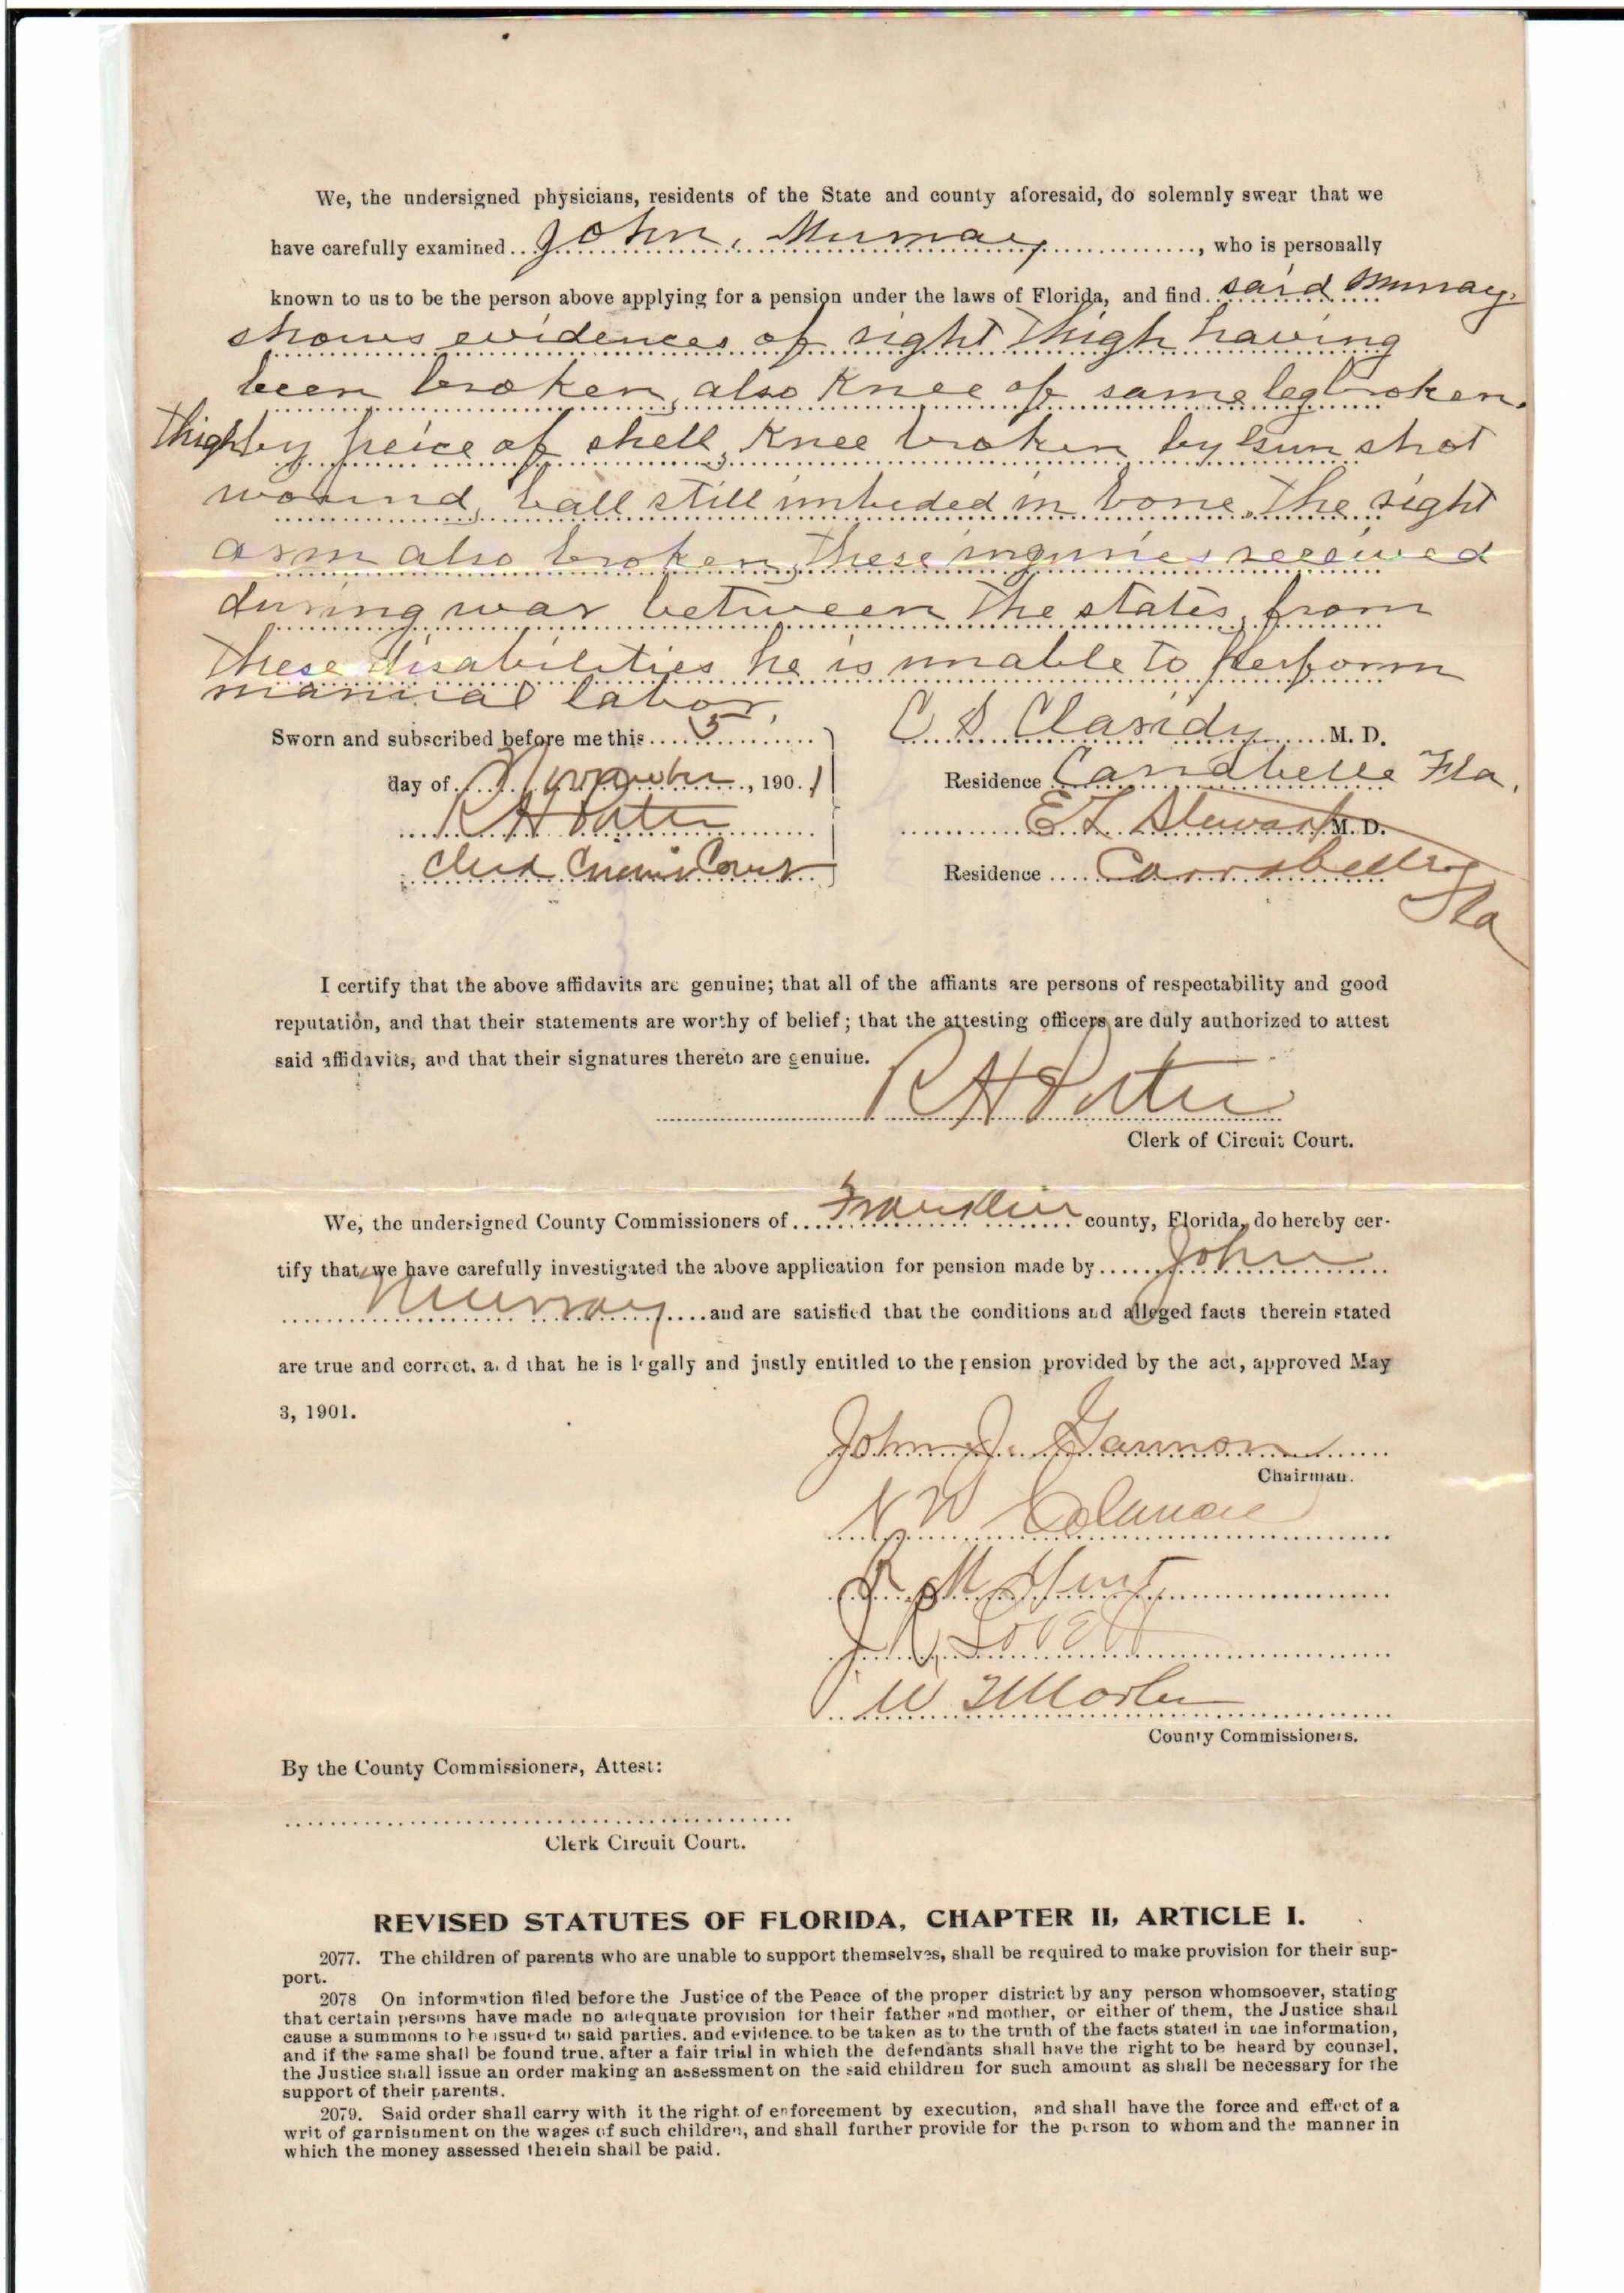 We, the undersigned physicians, residents of the State and county aforesaid, do solemnly swear that we
have carefully examined John, Murray, who is personally
known to us to be the person above applying for a pension under the laws of Florida, and find said Murray,
shows evidences of right thigh having
been broken, also Knee of same leg broken.
Thigh by peice of shell, Knee broken by Gun shot
wound, ball still imbeded in bone. The right
arm also broken, these injuries received
during war between the states, from
these disabilities he is unable to perform
manual labor,
Sworn and subscribed before me this 5
day of November, 1901
R H Porter
Clerk Circuit Court
C S M. D.
Residence Carrabelle Fla.
E L Stewart M. D.
Residence Carrabelle
Fla
I certify that the above affidavits are genuine; that all of the affiants are persons of respectability and good
reputation, and that their statements are worthy of belief; that the attesting officers are duly authorized to attest
said affidavits, and that their signatures thereto are genuine.
R H Porter
Clerk of Circuit Court.
We, the undersigned County Commissioners of Franklin county, Florida, do hereby cer-
tify that we have carefully investigated the above application for pension made by John
Murray and are satisfied that the conditions and alleged facts therein stated
are true and correct, and that he is legally and justly entitled to the pension provided by the act, approved May
3, 1901.
John J. Gannon
Chairman.
N W
R M
J R Lovett
W T Marler
County Commissioners.
By the County Commissioners, Attest:
Clerk Circuit Court.
REVISED STATUTES OF FLORIDA, CHAPTER II, ARTICLE I.
2077. The children of parents who are unable to support themselves, shall be required to make provision for their sup-
port.
2078 On information filed before the Justice of the Peace of the proper district by any person whomsoever, stating
that certain persons have made no adequate provision for their father and mother, or either of them, the Justice shall
cause a summons to be issued to said parties, and evidence to be taken as to the truth of the facts stated in the information,
and if the same shall be found true, after a fair trial in which the defendants shall have the right to be heard by counsel,
the Justice shall issue an order making an assessment on the said children for such amount as shall be necessary for the
support of their parents.
2079. Said order shall carry with it the right of enforcement by execution, and shall have the force and effect of a
writ of garnishment on the wages of such children, and shall further provide for the person to whom and the manner in
which the money assessed therein shall be paid.